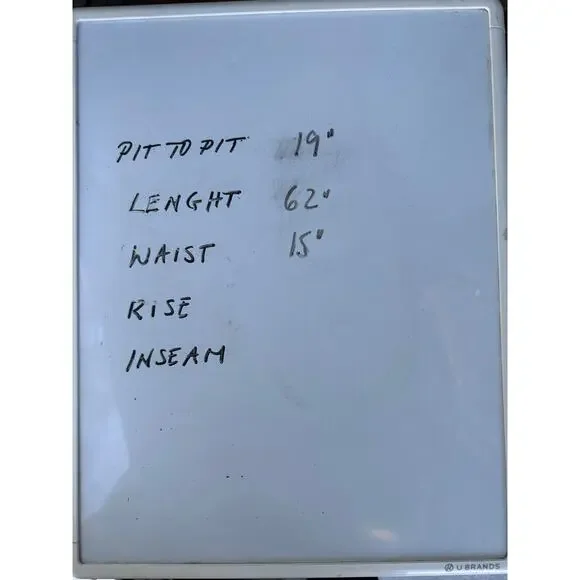 PIT TO PIT 19"
LENGHT 62"
WAIST 15"
RISE
INSEAM
U BRANDS